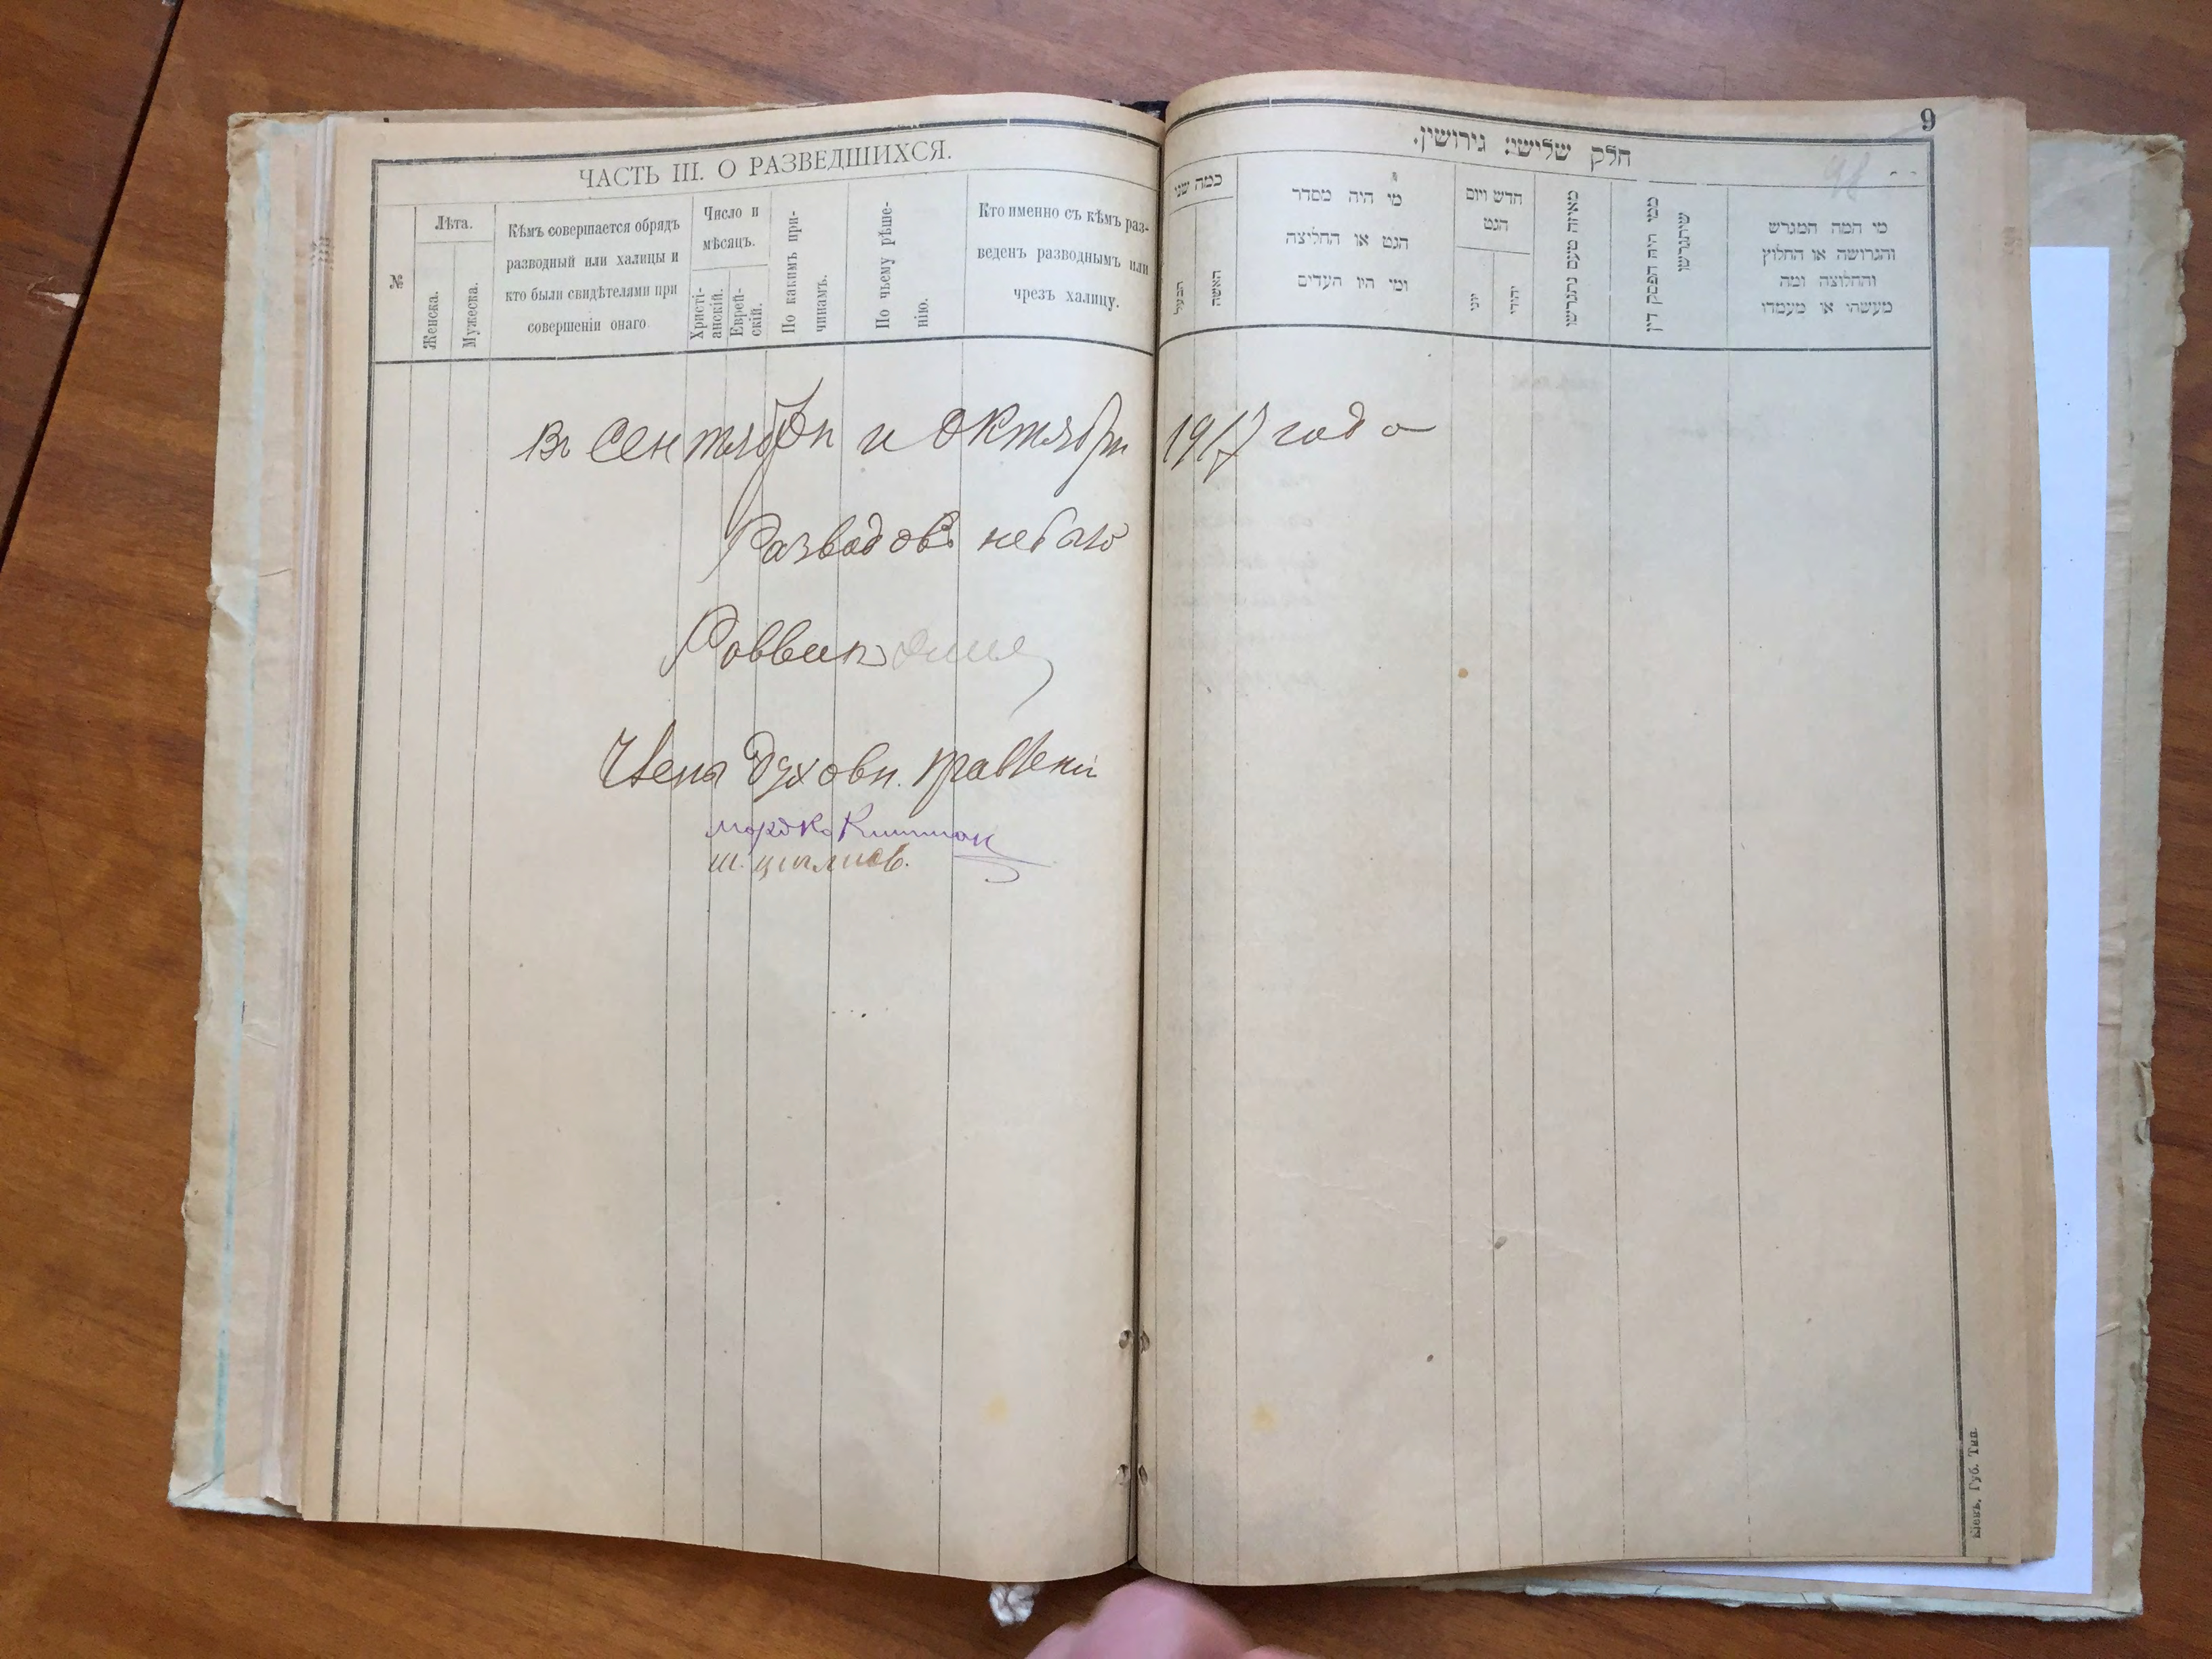 ЧАСТЬ III. О РАЗВЕДШИХСЯ.
№
Лѣта.
Женска.
Мужеска.
Кѣмъ совершается обрядъ
разводный или халицы и
кто были свидѣтелями при
совершеніи онаго
Число и
мѣсяцъ.
Христі-
анскій.
Еврей-
скій.
По какимъ при-
чинамъ.
По чьему рѣше-
нію.
Кто именно съ кѣмъ раз-
веденъ разводнымъ или
чрезъ халицу.
9
חלק שלישי: גירושין.
48
כמה שני
הבעל
האשה
מי היה מסדר
הגט או החליצה
ומי היו העדים
חדש ויום
הגט
יוני
יהודי
מאיזה טעם נתגרשו
ממי היה הפסק דין
שיתגרשו
מי המה המגרש
והגרושה או החלוץ
והחלוצה ומה
מעשהו או מעמדו
Въ Сентябрѣ и Октябрѣ 1917 года
Разводовъ небыло
Раввинъ
Члены Духовн. правленi
мордко
ш.
Кіевъ, Губ. Тип.